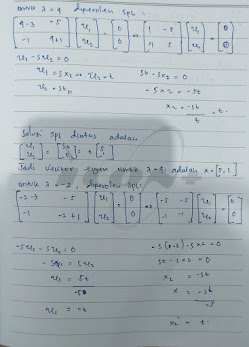 untuk λ = 4 diperoleh SPL :
[4-3 -5 / -1 4+1] [x1 / x2] = [0 / 0] => [1 -5 / -1 5] [x1 / x2] = [0 / 0]
x1 - 5x2 = 0
x1 = 5x2 → x2 = t 5t - 5x2 = 0
x1 = 5t - 5x2 = -5t
x2 = -5t
t.
Solusi SPL diatas adalah
[x1 / x2] = [5t / t] = t [5 / 1]
Jadi vektor eigen untuk λ = 4, adalah x = [5,1]
untuk λ = -2, diperoleh SPL:
[-2-3 -5 / -1 -2+1] [x1 / x2] = [0 / 0] => [-5 -5 / -1 -1] [x1 / x2] = [0 / 0]
-5x1 - 5x2 = 0
- 5x1 = 5x2 5t - 5x2 = 0
x1 = 5t x2 = -5t
-5 x = -5t
x1 = -t -5
x2 = t.